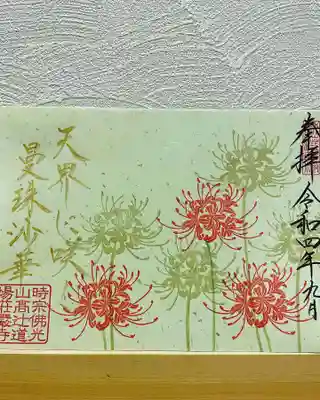 奉拝
令和四年九月
天界に咲く
曼珠沙華
時宗佛光
山高辻道
場荘厳寺